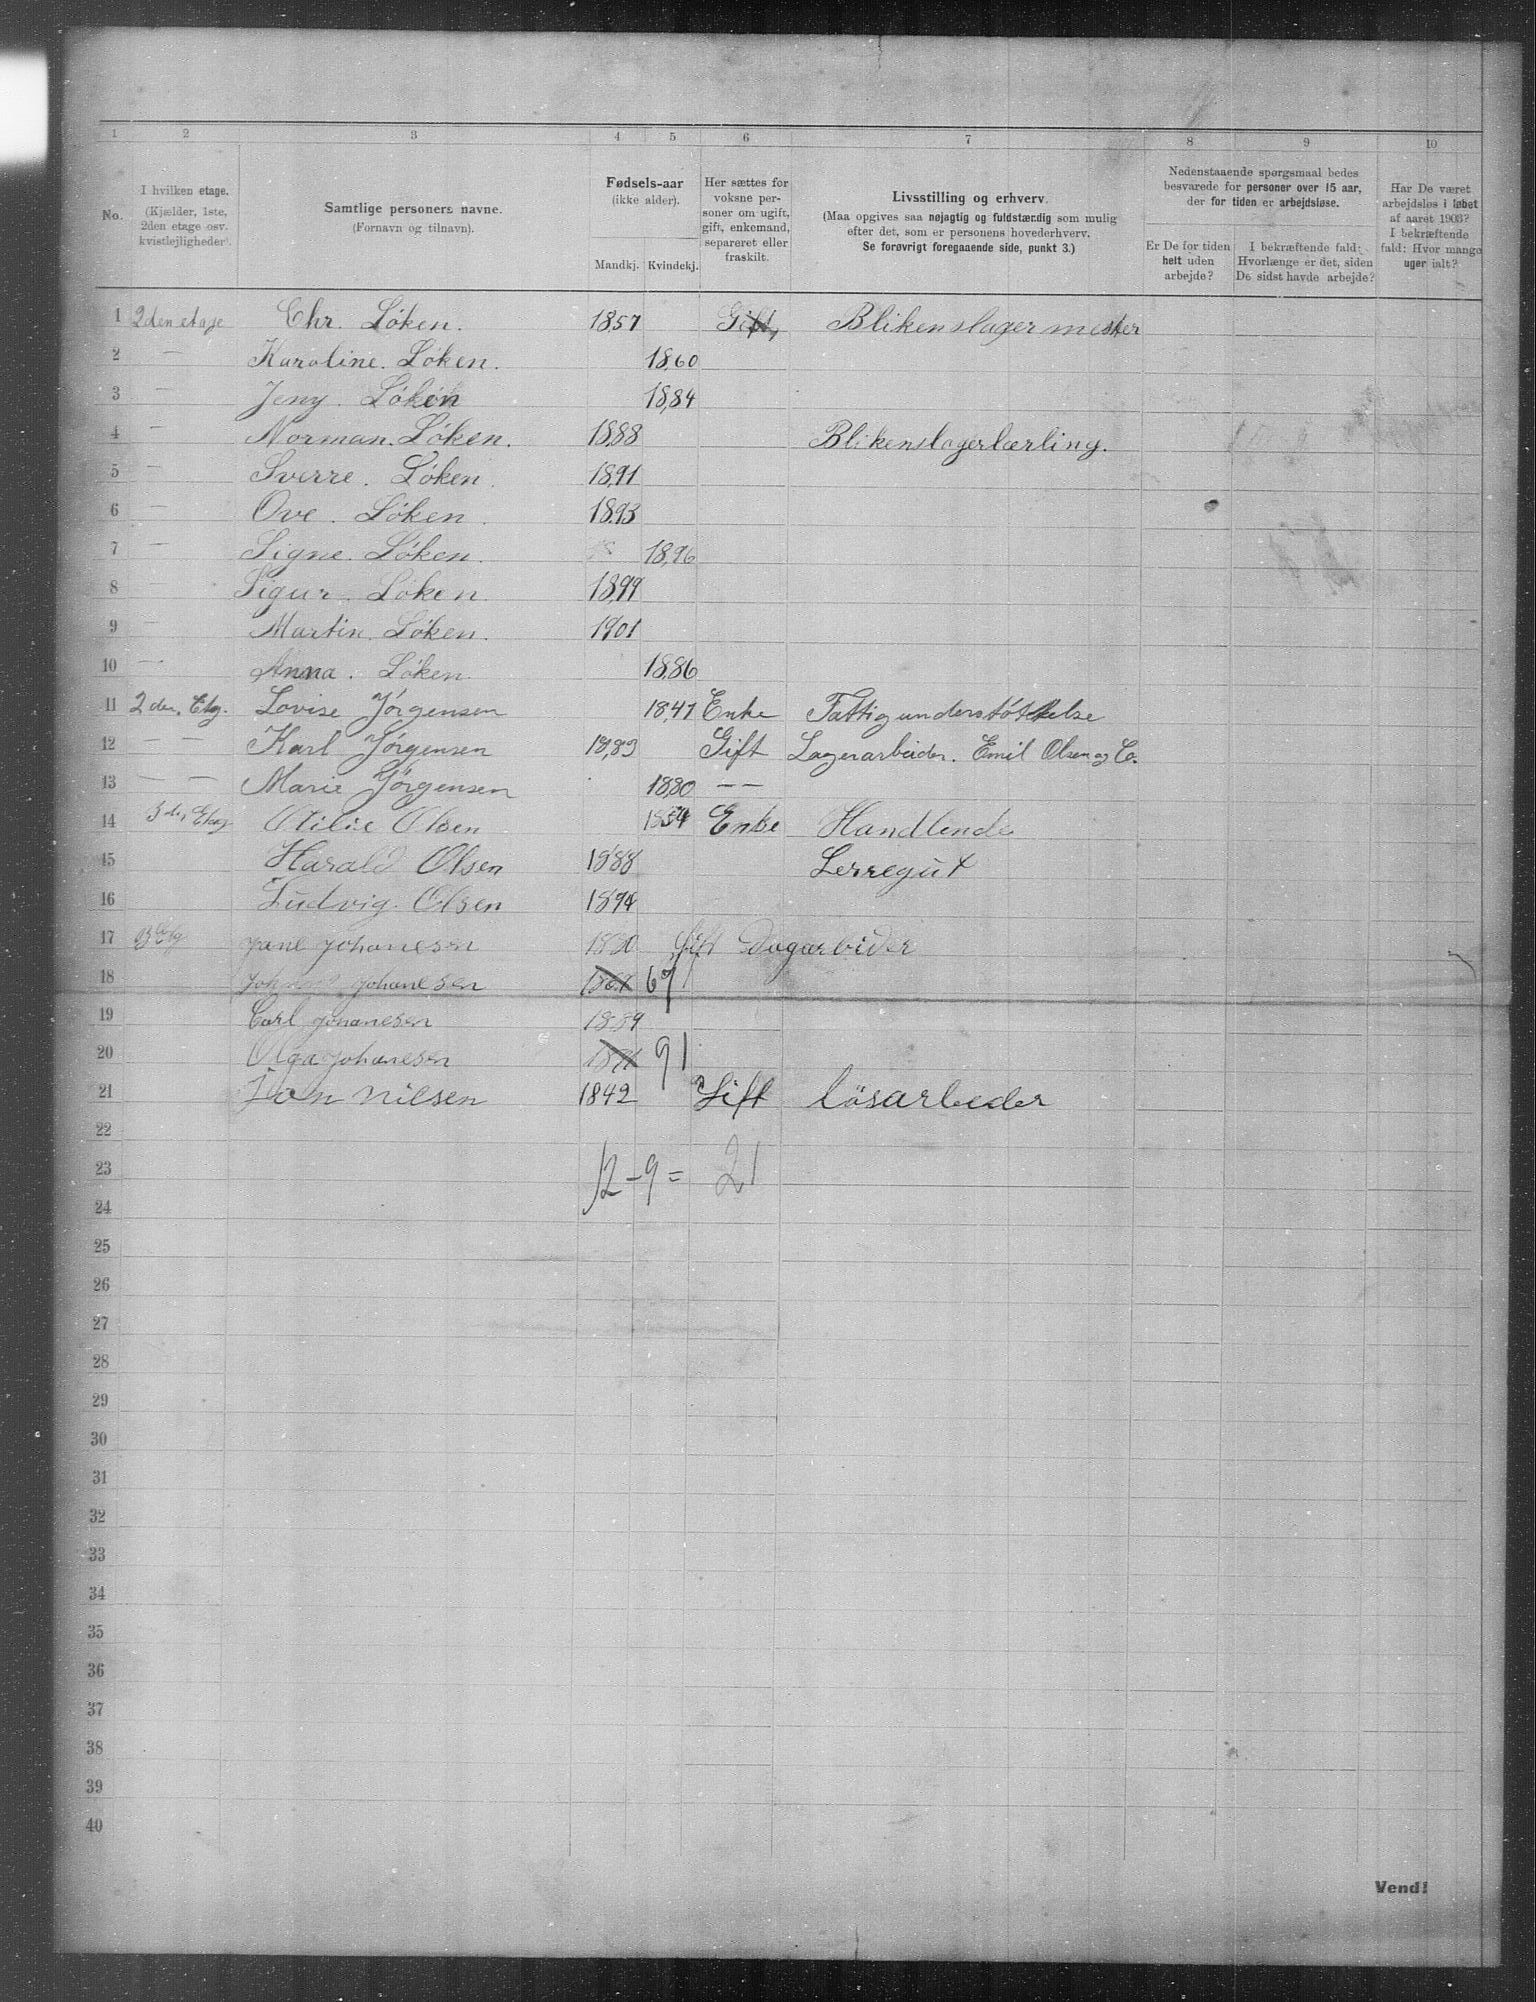 1 2 3 4 5 6 7 8 9 10
No.
I hvilken etage.
(Kjælder, 1ste,
2den etage osv.
kvistlejligheder).
Samtlige personers navne.
(Fornavn og tilnavn).
Fødsels-aar
(ikke alder).
Mandkj. Kvindekj.
Her sættes for
voksne per-
soner om ugift,
gift, enkemand,
separeret eller
fraskilt.
Livsstilling og erhverv.
(Maa opgives saa nøjagtig og fuldstændig som mulig
efter det, som er personens hovederhverv.
Se forøvrigt foregaaende side, punkt 3.)
Nedenstaaende spørgsmaal bedes
besvarede for personer over 15 aar,
der for tiden er arbejdsløse.
Er De for tiden
helt uden
arbejde?
I bekræftende fald:
Hvorlænge er det, siden
De sidst havde arbejde?
Har De været
arbejdsløs i løbet
af aaret 1903?
I bekræftende
fald: Hvor mange
uger ialt?
1 2den etage Chr. Løken. 1857 Gift, Blikenslagermester
2 — Karoline. Løken. 1860
3 — Jeny. Løken 1884
4 — Norman. Løken. 1888 Blikenslagerlærling.
5 — Sverre. Løken. 1891
6 — Ove. Løken. 1893
7 — Signe. Løken. 1896
8 — Sigur. Løken. 1899
9 — Martin. Løken. 1901
10 — Anna. Løken. 1886
11 2den. Etg. Lovise Jørgensen 1847 Enke Fattigunderstøttelse
12 — — Karl Jørgensen 1883 Gift Lagerarbeider. Emil Olsen og Co.
13 — — Marie Jørgensen 1880 — —
14 3de, Etag Otilie Olsen 1854 Enke Handlende
15 Harald Olsen 1888 Lerregut
16 Ludvig. Olsen 1894
17 3 Etg Johanesen Gift Dagarbider
18 Johanesen 67
19 Carl Johanesen 1889
20 Olga Johanesen 1891 91
21 Jon Nilsen 1842 Gift Løsarbeder
22
23 12 – 9 = 21
24
25
26
27
28
29
30
31
32
33
34
35
36
37
38
39
40
Vend!